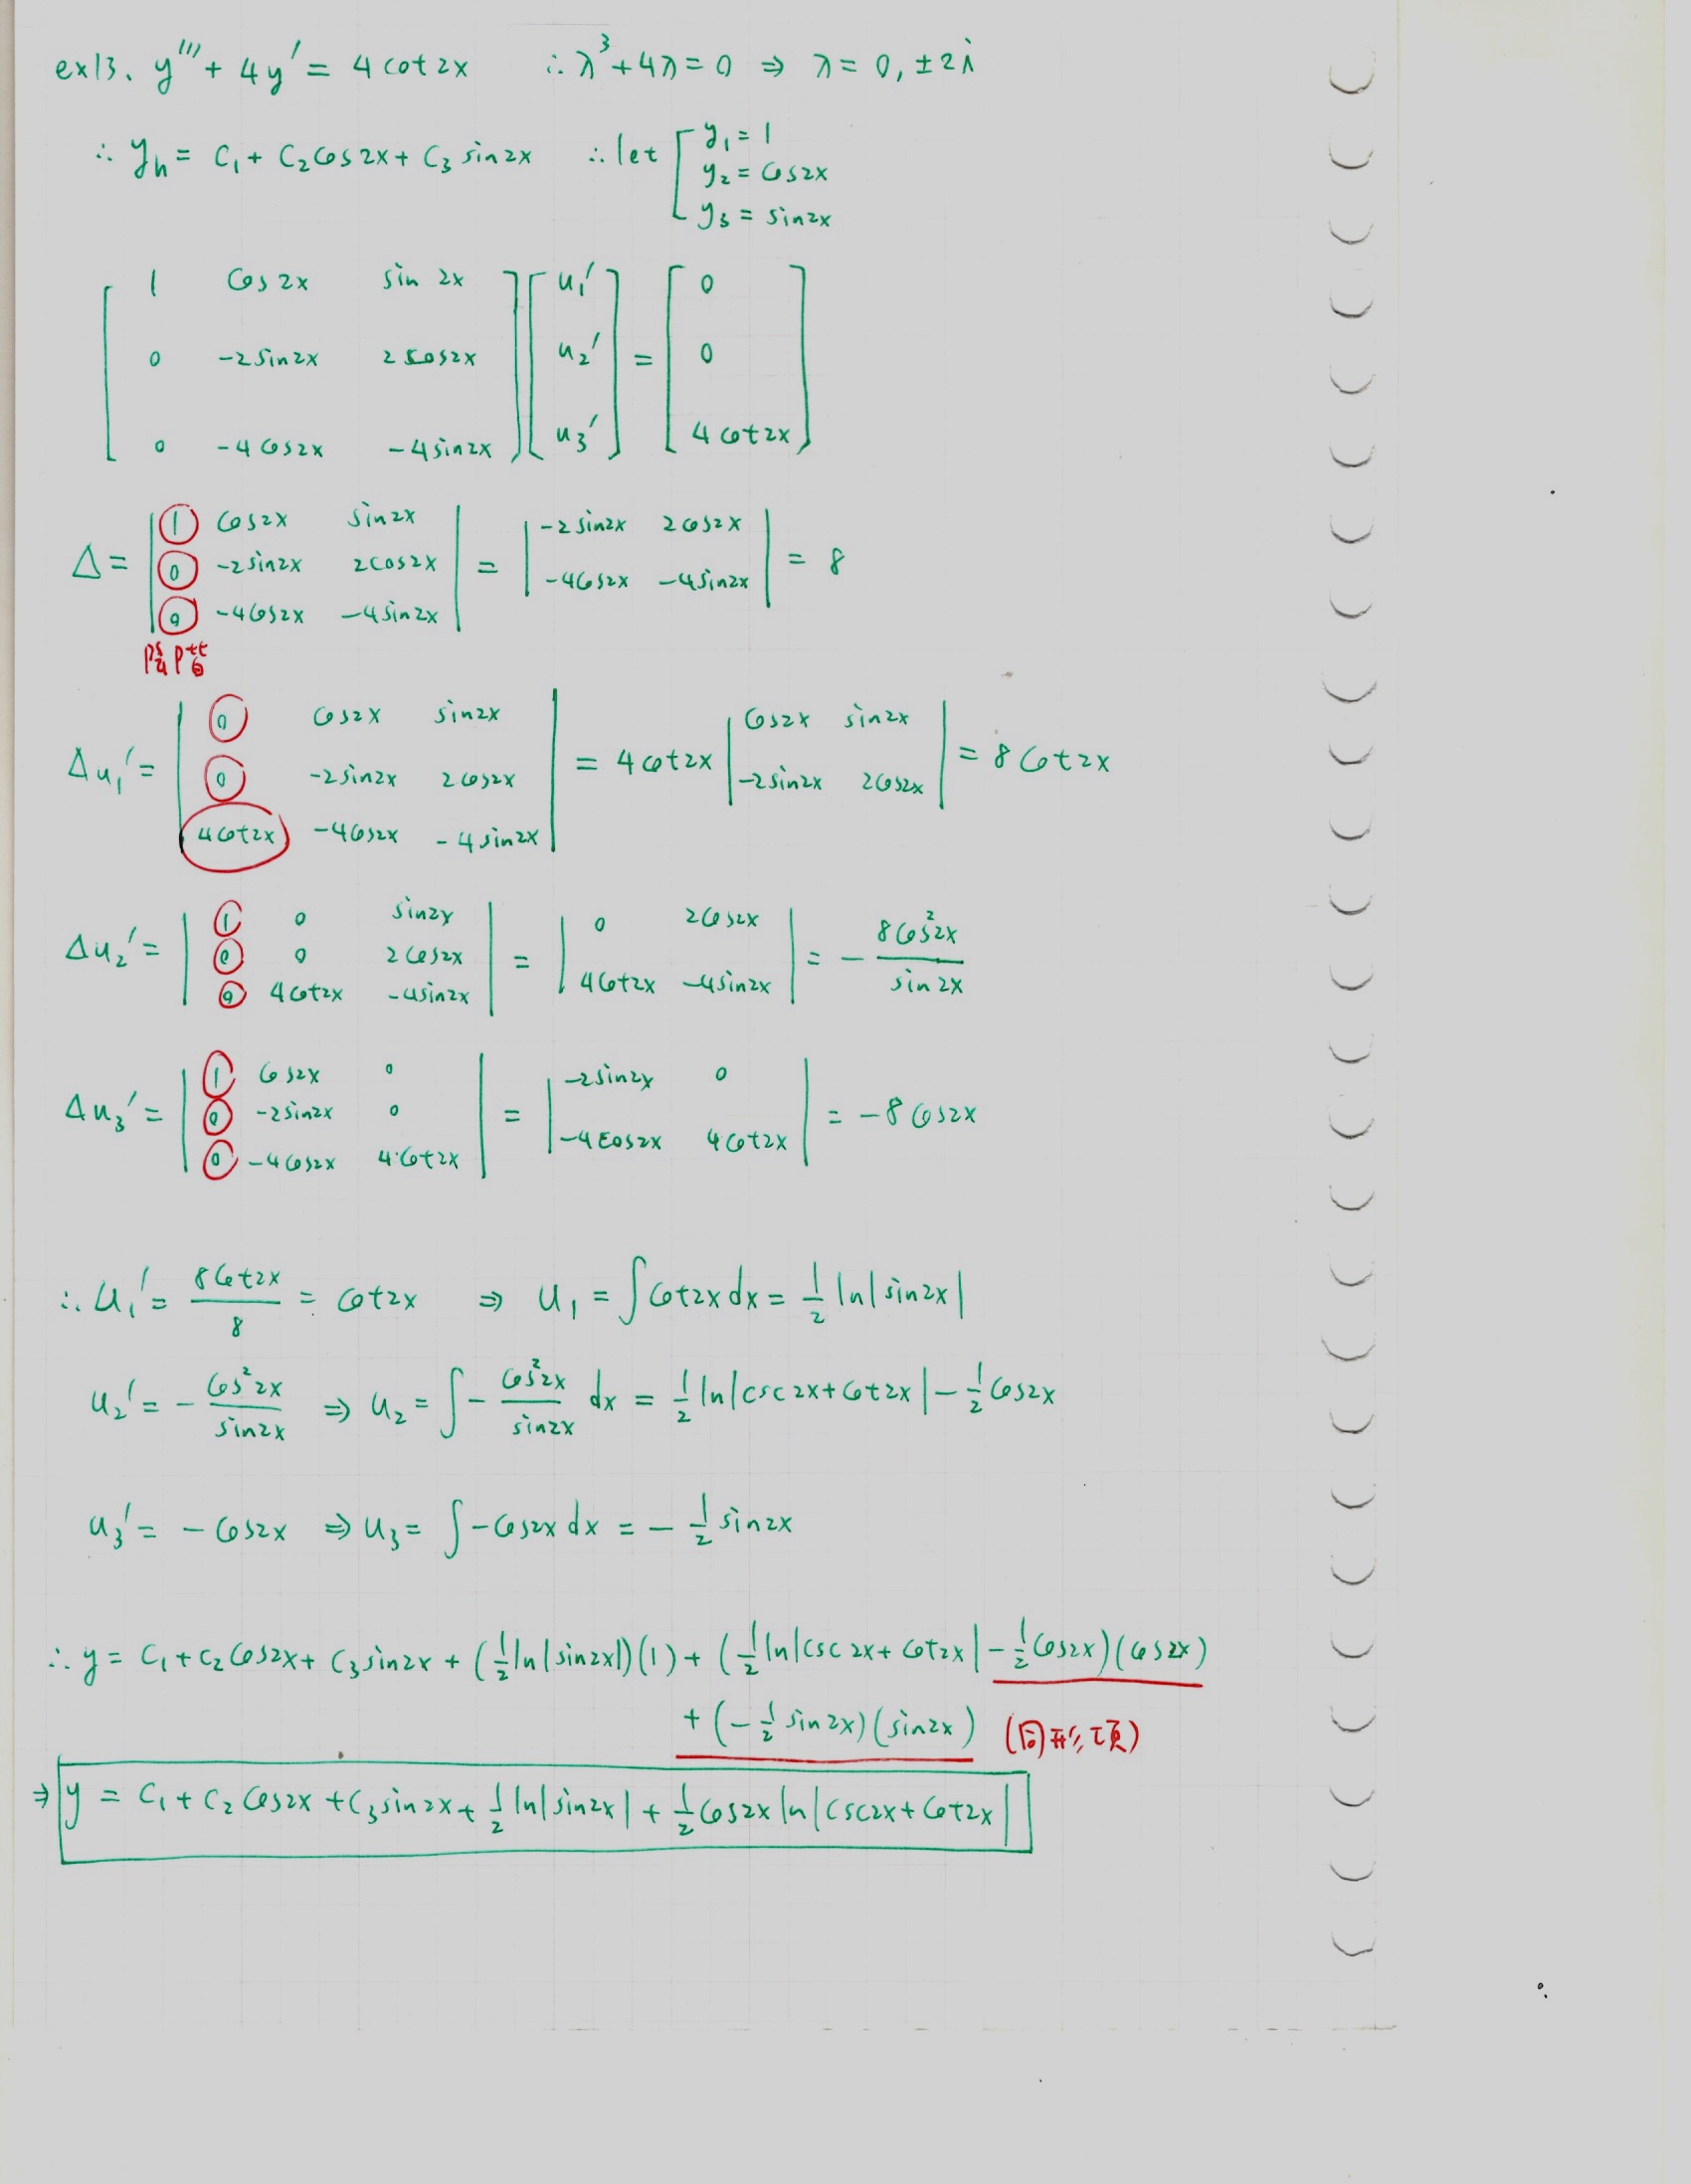 ex13. y''' + 4y' = 4 cot2x ∴ λ³+4λ=0 ⇒ λ = 0, ±2i
∴ y_h = C₁ + C₂cos2x + C₃ sin2x ∴ let [ y₁ = 1
y₂ = cos2x
y₃ = sin2x
[ 1 cos2x sin 2x ] [ u₁' ] = [ 0 ]
[ 0 -2sin2x 2cos2x ] [ u₂' ] = [ 0 ]
[ 0 -4cos2x -4sin2x ] [ u₃' ] = [ 4cot2x ]
Δ = | 1 cos2x sin2x ; 0 -2sin2x 2cos2x ; 0 -4cos2x -4sin2x | = | -2sin2x 2cos2x ; -4cos2x -4sin2x | = 8
降階
Δu₁' = | 0 cos2x sin2x ; 0 -2sin2x 2cos2x ; 4cot2x -4cos2x -4sin2x | = 4cot2x | cos2x sin2x ; -2sin2x 2cos2x | = 8cot2x
Δu₂' = | 1 0 sin2x ; 0 0 2cos2x ; 0 4cot2x -4sin2x | = | 0 2cos2x ; 4cot2x -4sin2x | = - 8cos²2x / sin2x
Δu₃' = | 1 cos2x 0 ; 0 -2sin2x 0 ; 0 -4cos2x 4cot2x | = | -2sin2x 0 ; -4cos2x 4cot2x | = -8cos2x
∴ u₁' = 8cot2x / 8 = cot2x ⇒ u₁ = ∫cot2x dx = ½ ln|sin2x|
u₂' = - cos²2x / sin2x ⇒ u₂ = ∫ - cos²2x / sin2x dx = ½ ln|csc2x+cot2x| - ½cos2x
u₃' = -cos2x ⇒ u₃ = ∫-cos2x dx = - ½ sin2x
∴ y = C₁+C₂cos2x+ C₃sin2x + (½ln|sin2x|)(1) + (½ln|csc2x+cot2x| - ½cos2x)(cos2x)
+ (-½ sin2x)(sin2x) (同形項)
⇒ y = C₁ + C₂ cos2x + C₃sin2x + ½ ln|sin2x| + ½cos2x ln|csc2x+cot2x|